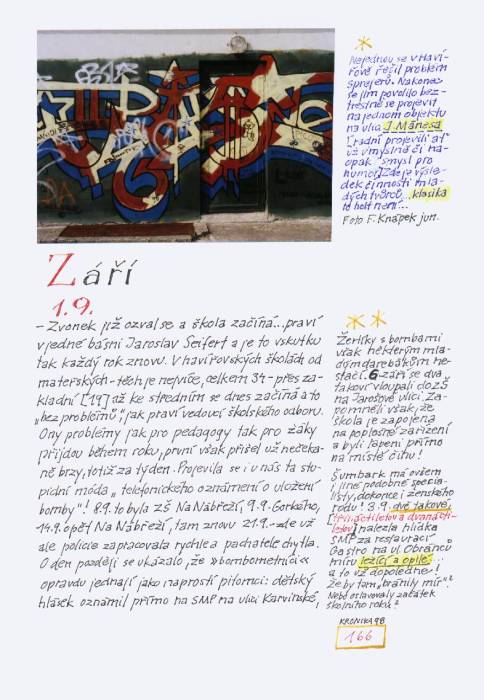 *
Nejednou se v Haví-
řově řešil problém
sprejerů. Nakonec
se jim povolilo bez-
trestně se projevit
na jednom objektu
na ulici J. Mánesa
[radní projevili ať
už úmyslně či na-
opak "smysl pro
humor] Zde je výsle-
dek činnosti mla-
dých tvůrců... klasika
to holt není...
Foto F. Knápek jun.
Září
1.9.
– Zvonek již ozval se a škola začíná... praví
v jedné básni Jaroslav Seifert a je to vskutku
tak každý rok znovu. V havířovských školách od
mateřských – těch je nejvíce, celkem 34 – přes zá-
kladní [19] až ke středním se dnes začíná a to
„bez problémů", jak praví vedoucí školského odboru.
Ony problémy jak pro pedagogy tak pro žáky
přijdou během roku, první však přišel už nečeka-
ně brzy, totiž za týden. Projevila se i u nás ta stu-
pidní móda „telefonického oznámení o uložení
bomby"! 8.9. to byla ZŠ Na Nábřeží, 9.9. Gorkého,
14.9. opět Na Nábřeží, tam znovu 21.9. – zde už
ale policie zapracovala rychle a pachatele chytla.
O den později se ukázalo, že »bombometníci«
opravdu jednají jako naprostí pitomci: dětský
hlásek oznámil přímo na SMP na ulici Karvinské,
**
Žertíky s bombami
však některým mla-
dým darebákům ne-
stačí. 6. září se dva
takoví vloupali do ZŠ
na Jarošově ulici. Za-
pomněli však, že
škola je zapojena
na poplašné zařízení
a byli lapeni přímo
na místě činu!
Šumbark má ovšem
i jiné podobné specia-
listy, dokonce i ženského
rodu! 3.9. dvě takové,
nalezla hlídka
SMP za restaurací
Gastro na ul. Obránců
míru ležící a opilé...
a to už dopoledne!
Že by tam „bránily mír"?
Nebo oslavovaly začátek
školního roku?
KRONIKA 98
166